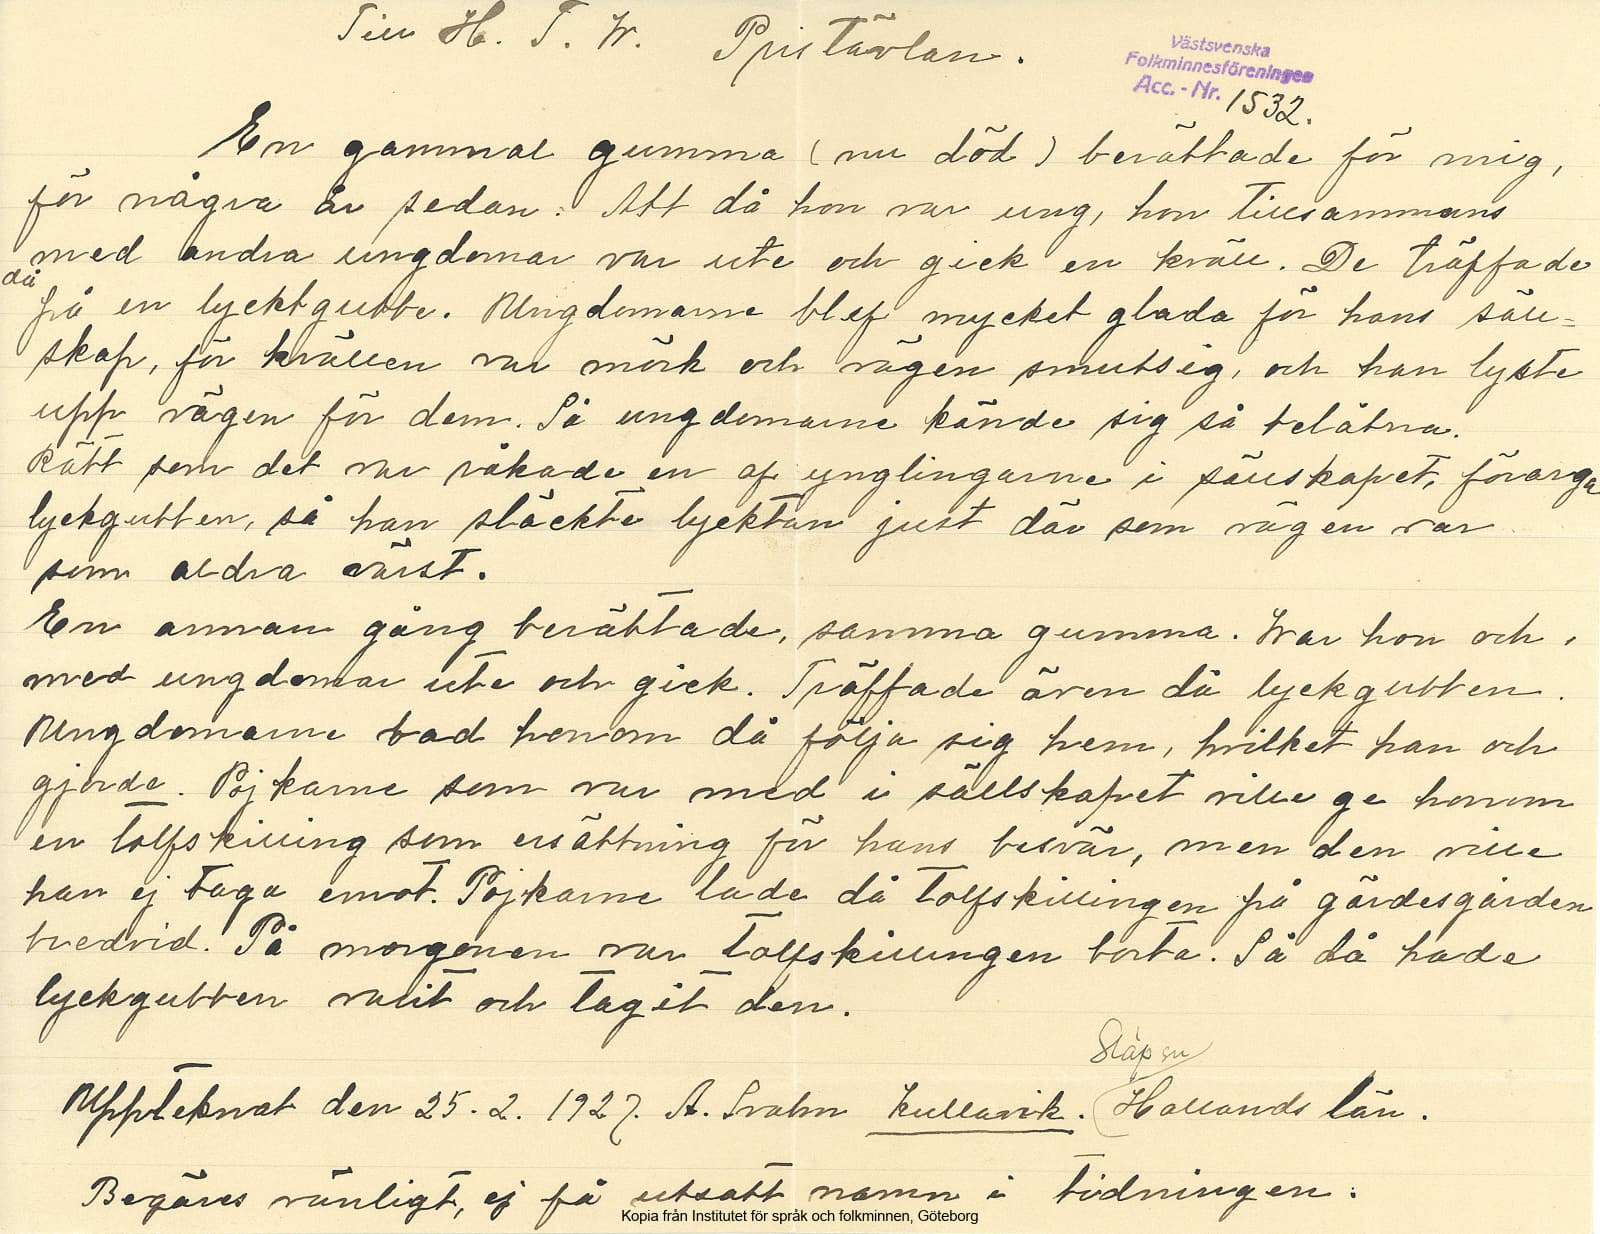 Till H. T. W. Pristävlan.
Västsvenska
Folkminnesföreningen
Acc. - Nr. 1532.
En gammal gumma (nu död) berättade för mig,
för några år sedan: Att då hon var ung, hon tillsammans
med andra ungdomar var ute och gick en kväll. De träffade
då på en lycktgubbe. Ungdomarne blef mycket glada för hans säll=
skap, för kvällen var mörk och vägen smutsig, och han lyste
upp vägen för dem. Så ungdomarne kände sig så belåtna.
Rätt som det var råkade en af ynglingarne i sällskapet, förarga
lyckgubben, så han släckte lycktan just där som vägen var
som aldra värst.
En annan gång berättade, samma gumma. War hon och,
med ungdomar ute och gick. Träffade även då lyckgubben.
Ungdomarne bad honom då följa sig hem, hvilket han och
gjorde. Pojkarne som var med i sällskapet ville ge honom
en tolfskilling som ersättning för hans besvär, men den ville
han ej taga emot. Pojkarne lade då tolfskillingen på gärdesgården
bredvid. På morgonen var tolfskillingen borta. Så då hade
lyckgubben varit och tagit den.
Släp sn
Uppteknat den 25. 2. 1927. A. Svahn Kullavik. (Hallands län.
Begäres vänligt, ej få utsatt namn i tidningen.
Kopia från Institutet för språk och folkminnen, Göteborg